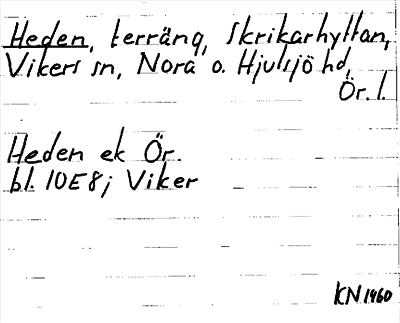 Heden, terräng, Skrikarhyttan,
Vikers sn, Nora o. Hjulsjö hd,
Ör. l.
Heden ek Ör.
bl. 10E8j Viker
KN 1960